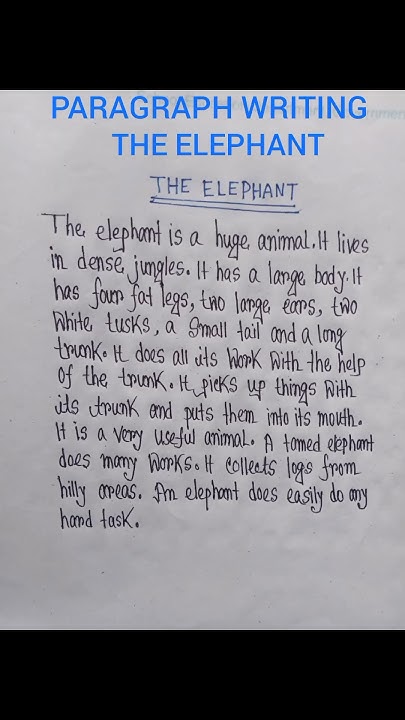 PARAGRAPH WRITING
THE ELEPHANT
THE ELEPHANT
The elephant is a huge animal. It lives
in dense jungles. It has a large body. It
has four fat legs, two large ears, two
white tusks, a small tail and a long
trunk. It does all its work with the help
of the trunk. It picks up things with
its trunk and puts them into its mouth.
It is a very useful animal. A tamed elephant
does many works. It collects logs from
hilly areas. An elephant does easily do any
hard task.